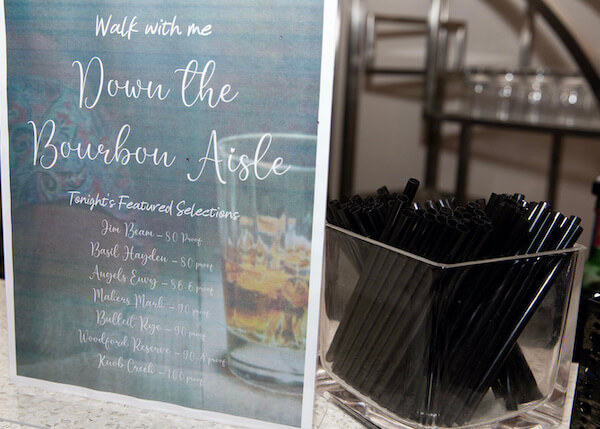 Walk with me
Down the
Bourbon Aisle
Tonight's Featured Selections
Jim Beam – 80 Proof
Basil Hayden – 80 proof
Angels Envy – 86.6 proof
Makers Mark – 90 proof
Bulleit Rye – 90 proof
Woodford Reserve – 90.4 proof
Knob Creek – 100 proof